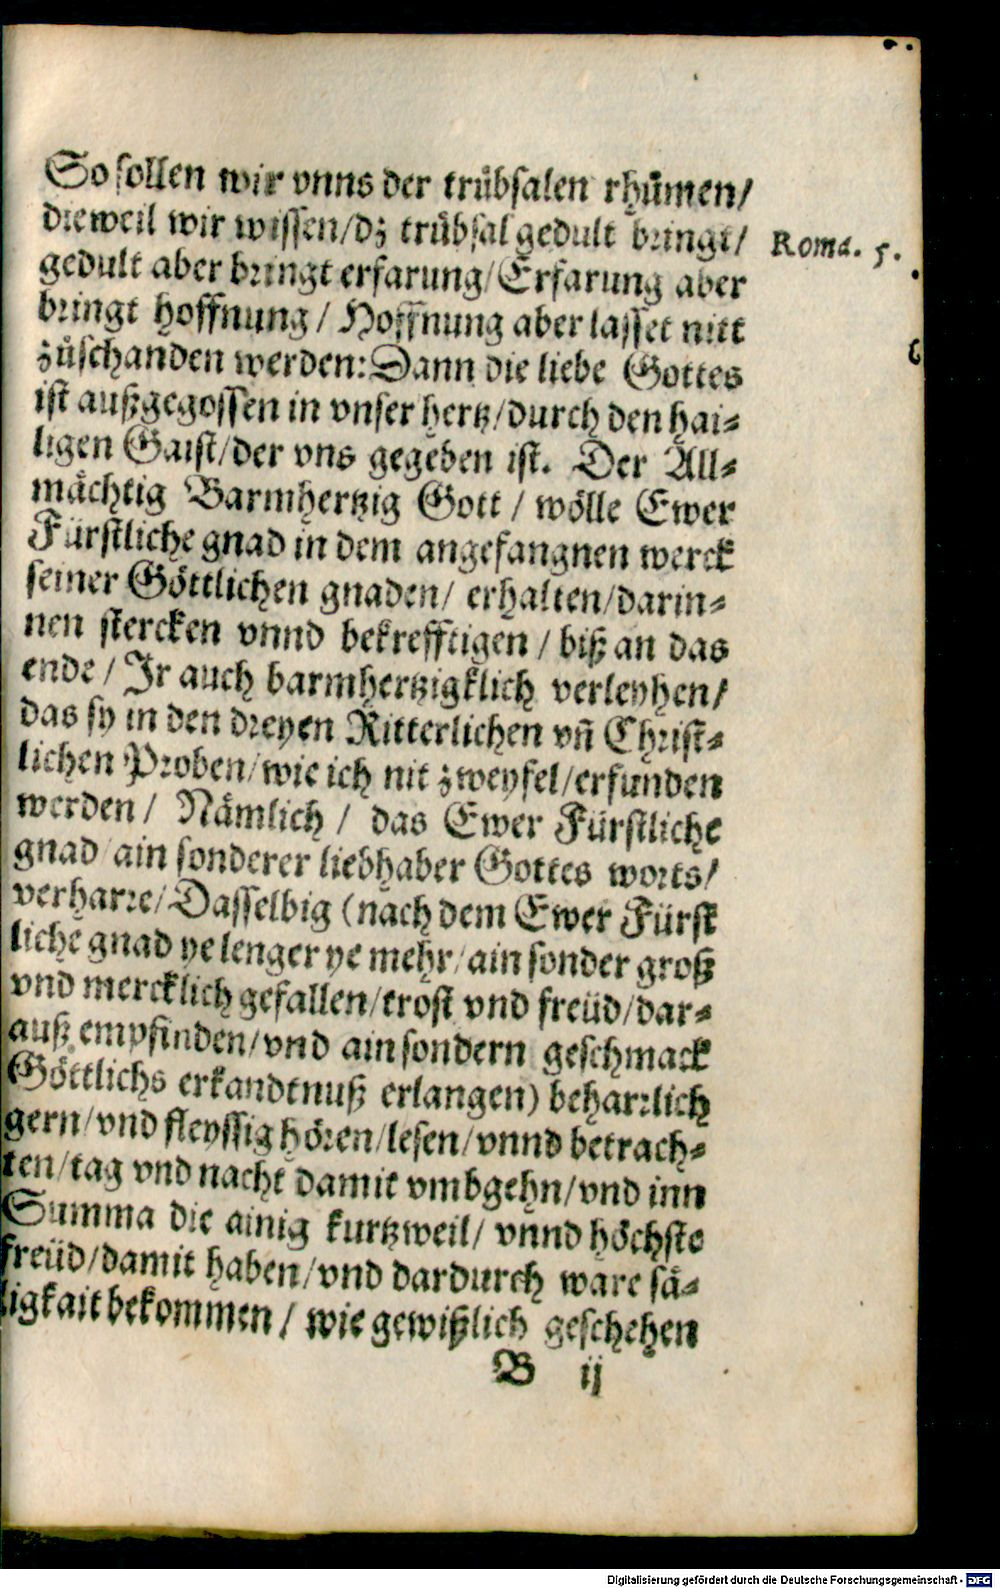 So sollen wir vnns der trübsalen rhümen/
dieweil wir wissen/dz trübsal gedult bringt/
Roma. 5.
gedult aber bringt erfarung/Erfarung aber
bringt hoffnung/ Hoffnung aber lasset nitt
zůschanden werden: Dann die liebe Gottes
ist außgegossen in vnser hertz/durch den hai-
ligen Gaist/der vns gegeben ist. Der All-
mächtig Barmhertzig Gott / wölle Ewer
Fürstliche gnad in dem angefangnen werck
seiner Göttlichen gnaden/ erhalten/darin-
nen stercken vnnd bekrefftigen / biß an das
ende / Jr auch barmhertzigklich verleyhen/
das sy in den dreyen Ritterlichen vñ Christ-
lichen Proben/wie ich nit zweyfel/erfunden
werden/ Nämlich / das Ewer Fürstliche
gnad ain sonderer liebhaber Gottes worts/
verharre/Dasselbig (nach dem Ewer Fürst
liche gnad ye lenger ye mehr/ain sonder groß
vnd mercklich gefallen/trost vnd freüd/dar-
auß empfinden/vnd ain sondern geschmack
Göttlichs erkandtnuß erlangen) beharrlich
gern/vnd fleyssig hören/lesen/vnnd betrach-
ten/tag vnd nacht damit vmbgehn/vnd inn
Summa die ainig kurtzweil/ vnnd höchste
freüd/damit haben/vnd dardurch ware sä-
ligkait bekommen / wie gewißlich geschehen
B ij
Digitalisierung gefördert durch die Deutsche Forschungsgemeinschaft - DFG